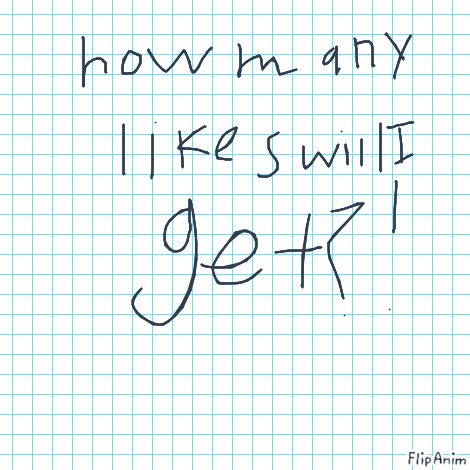 how many
likes will I
get?!
FlipAnim